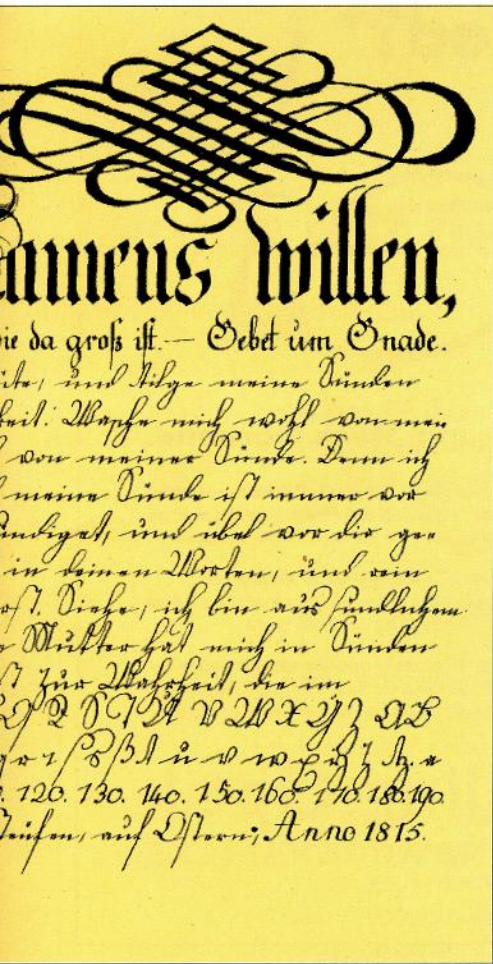 amens willen,
ie da groß ist. — Gebet um Gnade.
üte, und tilge meine Sünden
keit. Wasche mich wohl von mei
von meiner Sünde. Denn ich
meine Sünde ist immer vor
ündiget, und übel vor dir ge=
in deinen Worten, und rein
rst. Siehe, ich bin aus sündlichem
Mutter hat mich in Sünden
st zur Wahrheit, die im
Q R S T U V W X Y Z AB
q r s ſ ß t u v w x y z tz. a
120. 130. 140. 150. 160. 170. 180. 190.
Teufen, auf Ostern, Anno 1815.